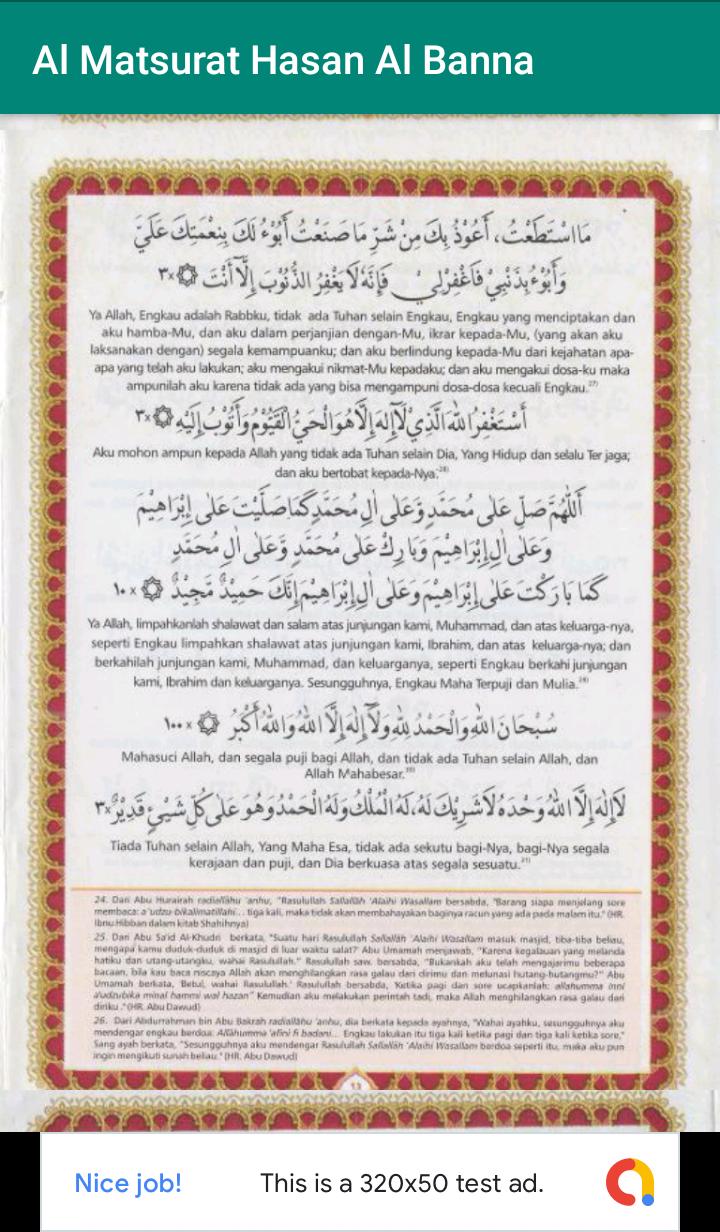 Al Matsurat Hasan Al Banna
مَااسْتَطَعْتُ، أَعُوْذُ بِكَ مِنْ شَرِّ مَا صَنَعْتُ أَبُوْءُ لَكَ بِنِعْمَتِكَ عَلَيَّ
وَأَبُوْءُ بِذَنْبِيْ فَاغْفِرْلِيْ فَإِنَّهُ لَا يَغْفِرُ الذُّنُوْبَ إِلَّا أَنْتَ ۞ ×٣
Ya Allah, Engkau adalah Rabbku, tidak ada Tuhan selain Engkau, Engkau yang menciptakan dan
aku hamba-Mu, dan aku dalam perjanjian dengan-Mu, ikrar kepada-Mu, (yang akan aku
laksanakan dengan) segala kemampuanku; dan aku berlindung kepada-Mu dari kejahatan apa-
apa yang telah aku lakukan; aku mengakui nikmat-Mu kepadaku; dan aku mengakui dosa-ku maka
ampunilah aku karena tidak ada yang bisa mengampuni dosa-dosa kecuali Engkau.²⁷⁾
أَسْتَغْفِرُ اللهَ الَّذِيْ لَآ إِلٰهَ إِلَّا هُوَ الْحَيُّ الْقَيُّوْمُ وَأَتُوْبُ إِلَيْهِ ۞ ×٣
Aku mohon ampun kepada Allah yang tidak ada Tuhan selain Dia, Yang Hidup dan selalu Ter jaga;
dan aku bertobat kepada-Nya.²⁸⁾
أَللّٰهُمَّ صَلِّ عَلٰى مُحَمَّدٍ وَّعَلٰى اٰلِ مُحَمَّدٍ كَمَا صَلَّيْتَ عَلٰى إِبْرَاهِيْمَ
وَعَلٰى اٰلِ إِبْرَاهِيْمَ وَبَارِكْ عَلٰى مُحَمَّدٍ وَّعَلٰى اٰلِ مُحَمَّدٍ
كَمَا بَارَكْتَ عَلٰى إِبْرَاهِيْمَ وَعَلٰى اٰلِ إِبْرَاهِيْمَ إِنَّكَ حَمِيْدٌ مَّجِيْدٌ ۞ ×١٠
Ya Allah, limpahkanlah shalawat dan salam atas junjungan kami, Muhammad, dan atas keluarga-nya,
seperti Engkau limpahkan shalawat atas junjungan kami, Ibrahim, dan atas keluarga-nya; dan
berkahilah junjungan kami, Muhammad, dan keluarganya, seperti Engkau berkahi junjungan
kami, Ibrahim dan keluarganya. Sesungguhnya, Engkau Maha Terpuji dan Mulia.
سُبْحَانَ اللهِ وَالْحَمْدُ لِلّٰهِ وَلَآ إِلٰهَ إِلَّا اللهُ وَاللهُ أَكْبَرُ ۞ ×١٠٠
Mahasuci Allah, dan segala puji bagi Allah, dan tidak ada Tuhan selain Allah, dan
Allah Mahabesar.
لَآ إِلٰهَ إِلَّا اللهُ وَحْدَهُ لَا شَرِيْكَ لَهُ، لَهُ الْمُلْكُ وَلَهُ الْحَمْدُ وَهُوَ عَلٰى كُلِّ شَيْئٍ قَدِيْرٌ ×٣
Tiada Tuhan selain Allah, Yang Maha Esa, tidak ada sekutu bagi-Nya, bagi-Nya segala
kerajaan dan puji, dan Dia berkuasa atas segala sesuatu.
24. Dari Abu Hurairah radiallâhu 'anhu, "Rasulullah Sallallâh 'Alaihi Wasallam bersabda, "Barang siapa menjelang sore
membaca: a'udzu bikalimatillahi... tiga kali, maka tidak akan membahayakan baginya racun yang ada pada malam itu." (HR.
Ibnu Hibban dalam kitab Shahihnya)
25. Dari Abu Sa'id Al-Khudri berkata, "Suatu hari Rasulullah Sallallâh 'Alaihi Wasallam masuk masjid, tiba-tiba beliau,
mengapa kamu duduk-duduk di masjid di luar waktu salat?' Abu Umamah menjawab, "Karena kegalauan yang melanda
hatiku dan utang-utangku, wahai Rasulullah." Rasulullah saw. bersabda, "Bukankah aku telah mengajarimu beberapa
bacaan, bila kau baca niscaya Allah akan menghilangkan rasa galau dari dirimu dan melunasi hutang-hutangmu?" Abu
Umamah berkata, Betul, wahai Rasulullah.' Rasulullah bersabda, Ketika pagi dan sore ucapkanlah: allahumma inni
a'udzubika minal hammi wal hazan" Kemudian aku melakukan perintah tadi, maka Allah menghilangkan rasa galau dari
diriku." (HR. Abu Dawud)
26. Dari Abdurrahman bin Abu Bakrah radiallâhu 'anhu, dia berkata kepada ayahnya, "Wahai ayahku, sesungguhnya aku
mendengar engkau berdoa: Allâhumma 'afini fi badani... Engkau lakukan itu tiga kali ketika pagi dan tiga kali ketika sore."
Sang ayah berkata, "Sesungguhnya aku mendengar Rasulullah Sallallâh 'Alaihi Wasallam berdoa seperti itu, maka aku pun
ingin mengikuti sunah beliau." (HR. Abu Dawud)
Nice job! This is a 320x50 test ad.